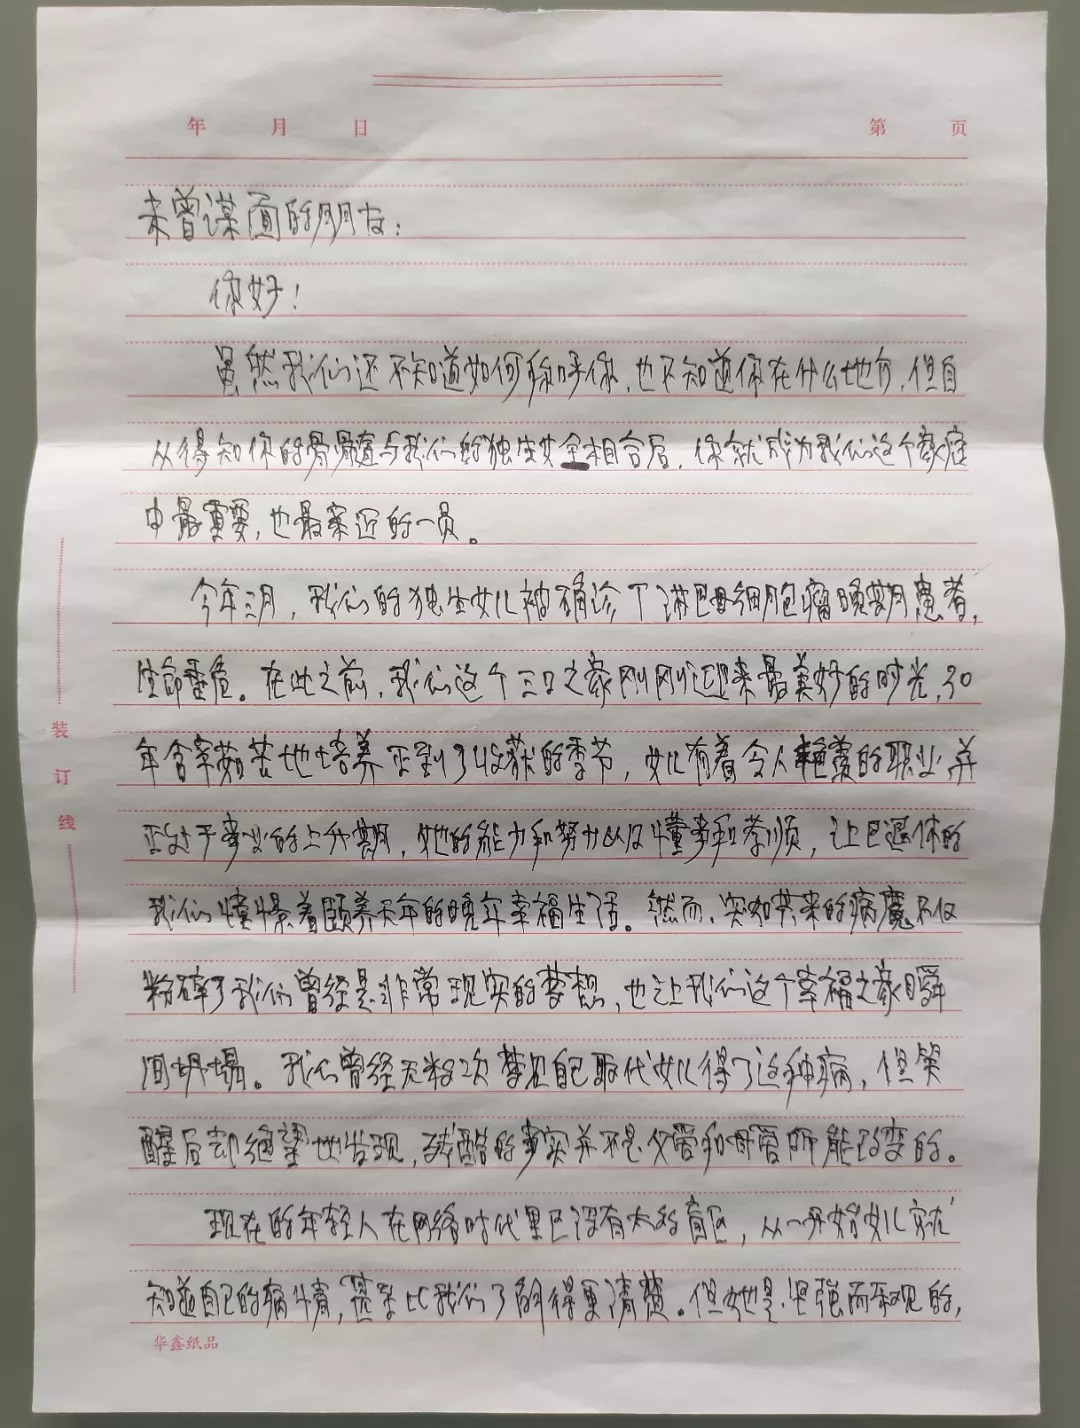 年 月 日 第 页
未曾谋面的朋友：
你好！
虽然我们还不知道如何称呼你，也不知道你在什么地方，但自
从得知你的骨髓与我们的独生女全相合后，你就成为我们这个家庭
中最重要，也最亲近的一员。
今年三月，我们的独生女儿被确诊了淋巴母细胞瘤晚期患者，
生命垂危。在此之前，我们这个三口之家刚刚迎来最美好的时光，30
年含辛茹苦地培养正到了收获的季节，女儿有着令人艳羡的职业并
正处于事业的上升期，她的能力和努力以及懂事和孝顺，让已退休的
我们憧憬着颐养天年的晚年幸福生活。然而，突如其来的病魔不仅
粉碎了我们曾经是非常现实的梦想，也让我们这个幸福之家瞬
间坍塌。我们曾经无数次梦见自己取代女儿得了这种病，但笑
醒后却绝望地发现，残酷的事实并不是父爱和母爱所能改变的。
现在的年轻人在网络时代里已没有太多盲区，从一开始女儿就
知道自己的病情，甚至比我们了解得更清楚。但她是坚强而乐观的，
装
订
线
华鑫纸品